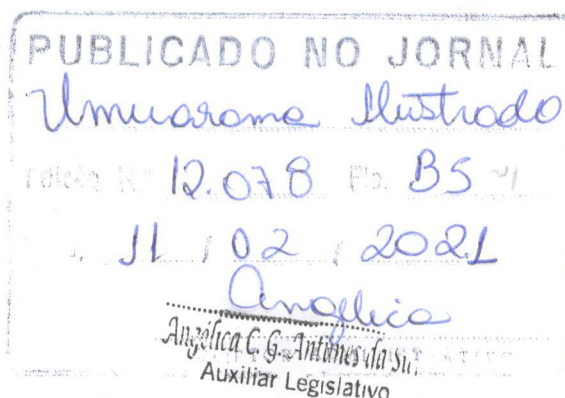 PUBLICADO NO JORNAL
Umuarama Ilustrado
Edição N.º 12.078 Fls. B5
11 / 02 / 2021
Angelica
Angélica C. G. Antunes da
Auxiliar Legislativo